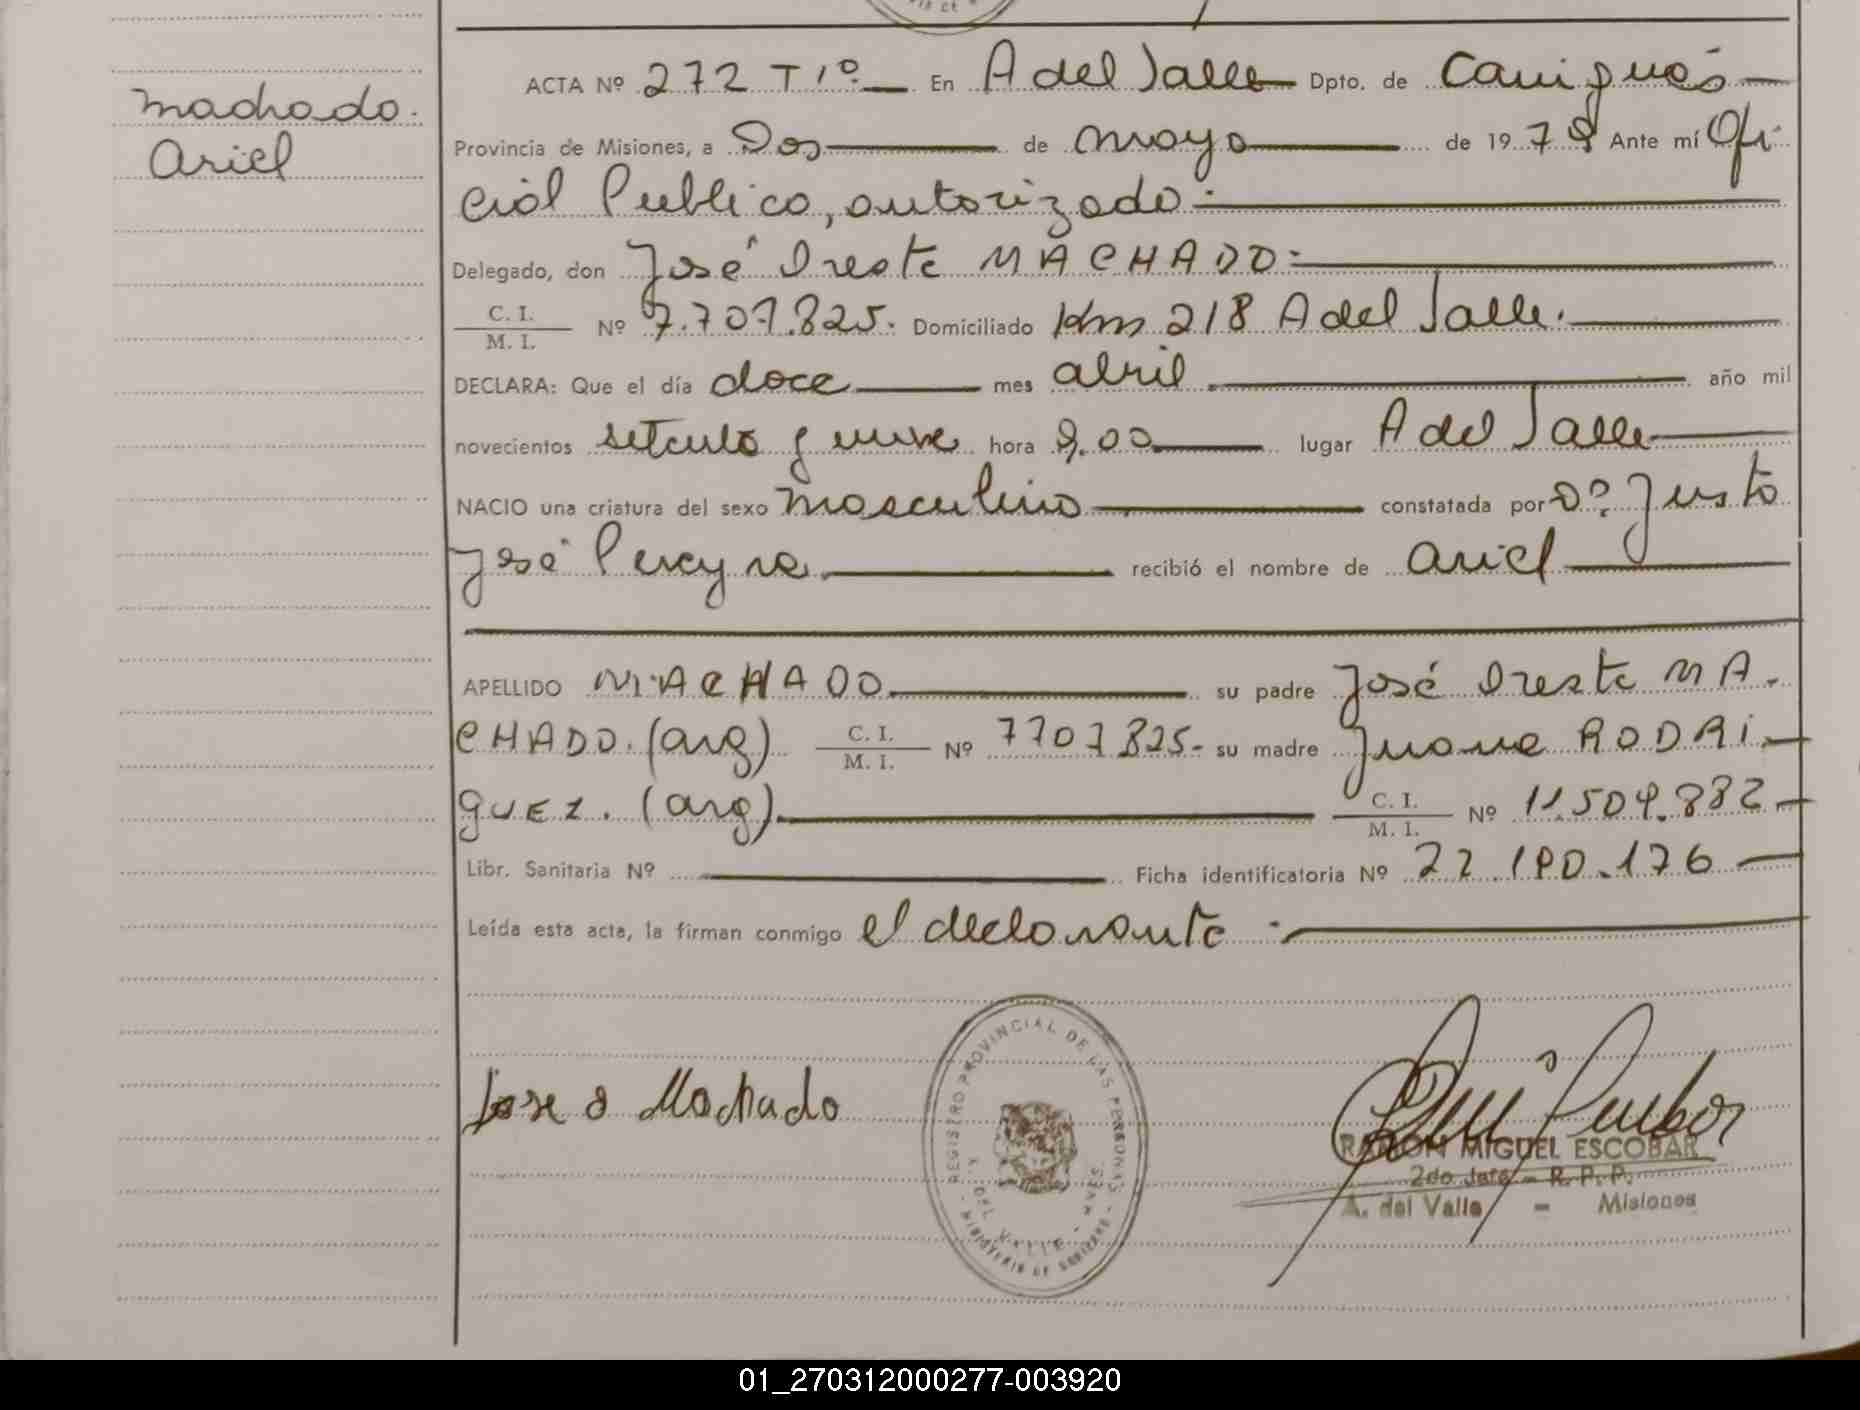 machado.
Ariel
ACTA Nº 272 Tº 1º En A del Valle Dpto. de Cainguás
Provincia de Misiones, a Dos de mayo de 1979 Ante mí Ofi
cial Publico, autorizado
Delegado, don José Oreste MACHADO
C. I.
M. I. Nº 7.707.825. Domiciliado Km 218 A del Valle.
DECLARA: Que el día doce mes abril año mil
novecientos setenta y nueve hora 9,00 lugar A del Valle
NACIO una criatura del sexo masculino constatada por Dº Justo
José Pereyra recibió el nombre de Ariel
APELLIDO MACHADO su padre José Oreste MA
CHADO. (arg) C. I. M. I. Nº 7707825- su madre Juana RODRI
GUEZ. (arg). C. I. M. I. Nº 11.509.882
Libr. Sanitaria Nº Ficha identificatoria Nº
Leída esta acta, la firman conmigo el declarante
Jose O Machado
REGISTRO PROVINCIAL DE LAS PERSONAS
RAMON MIGUEL ESCOBAR
2do Jefe - R. P. P.
A. del Valle - Misiones
01_270312000277-003920